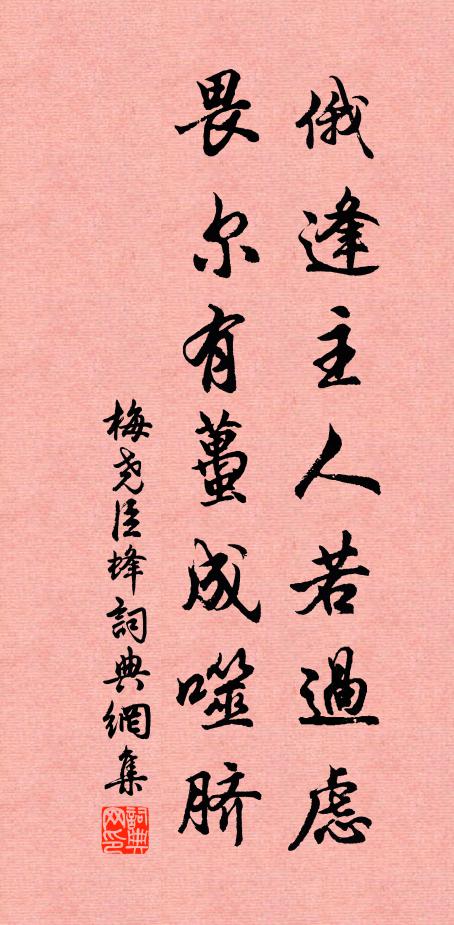 俄逢主人若過慮
畏尔有蠆成噬脐
梅尧臣蜂詞典網集
詞典网印